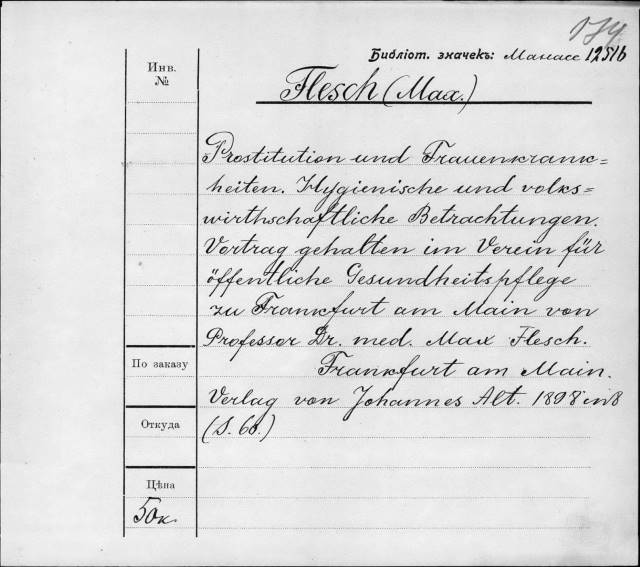 174
Библіот. значекъ: Манасс 12516
Инв.
№
Flesch (Max.)
Prostitution und Frauenkrank=
heiten. Hygienische und volks=
wirthschaftliche Betrachtungen.
Vortrag gehalten im Verein für
öffentliche Gesundheitspflege
zu Frankfurt am Main von
Professor Dr. med. Max Flesch.
Frankfurt am Main.
По заказу
Verlag von Johannes Alt. 1898 in 8
Откуда
(S. 60.)
Цѣна
50к